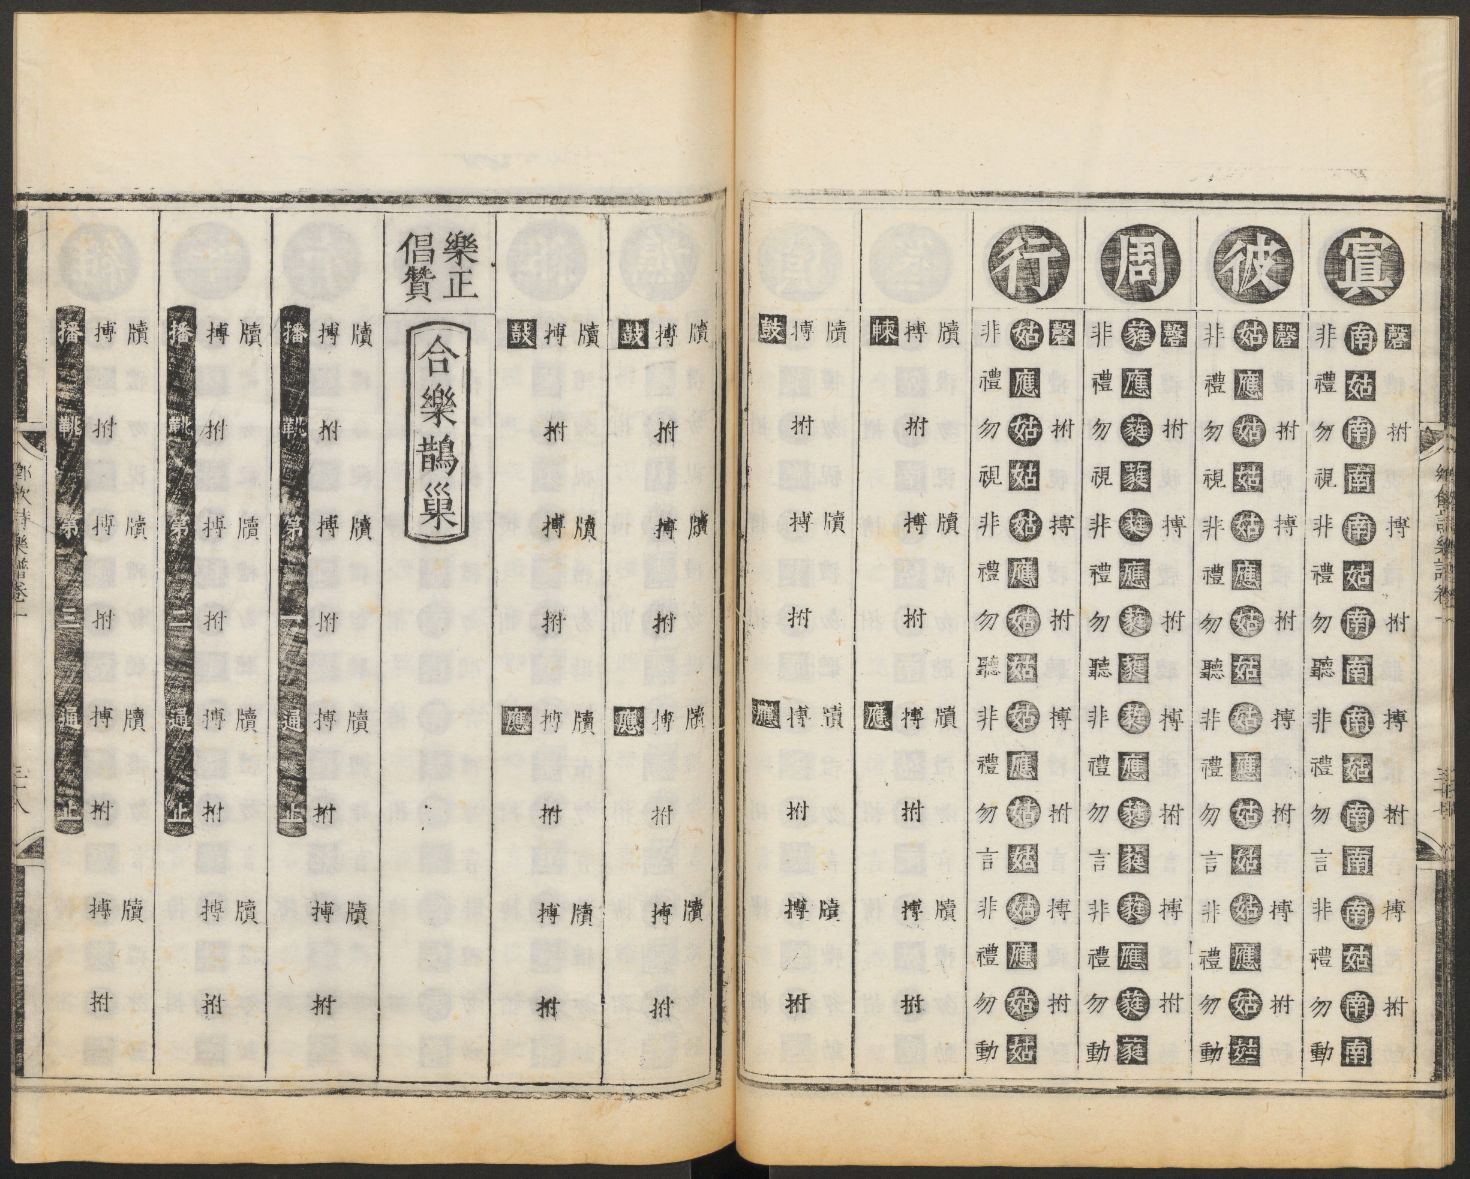 寘
磬拊搏拊搏拊搏拊
南姑南南南姑南南南姑南南南姑南南
非禮勿視非禮勿聽非禮勿言非禮勿動
彼
磬拊搏拊搏拊搏拊
姑應姑姑姑應姑姑姑應姑姑姑應姑姑
非禮勿視非禮勿聽非禮勿言非禮勿動
周
磬拊搏拊搏拊搏拊
蕤應蕤蕤蕤應蕤蕤蕤應蕤蕤蕤應蕤蕤
非禮勿視非禮勿聽非禮勿言非禮勿動
行
磬拊搏拊搏拊搏拊
姑應姑姑姑應姑姑姑應姑姑姑應姑姑
非禮勿視非禮勿聽非禮勿言非禮勿動
牘牘牘牘
搏拊搏拊搏拊搏拊
應
牘牘牘牘
搏拊搏拊搏拊搏拊
鼓應
牘牘牘牘
搏拊搏拊搏拊搏拊
鼓應
牘牘牘牘
搏拊搏拊搏拊搏拊
鼓應
樂正
倡贊
合樂鵲巢
牘牘牘牘
搏拊搏拊搏拊搏拊
播鞉第一通止
牘牘牘牘
搏拊搏拊搏拊搏拊
播鞉第二通止
牘牘牘牘
搏拊搏拊搏拊搏拊
播鞉第三通止
鄉飲詩樂譜卷
三十八